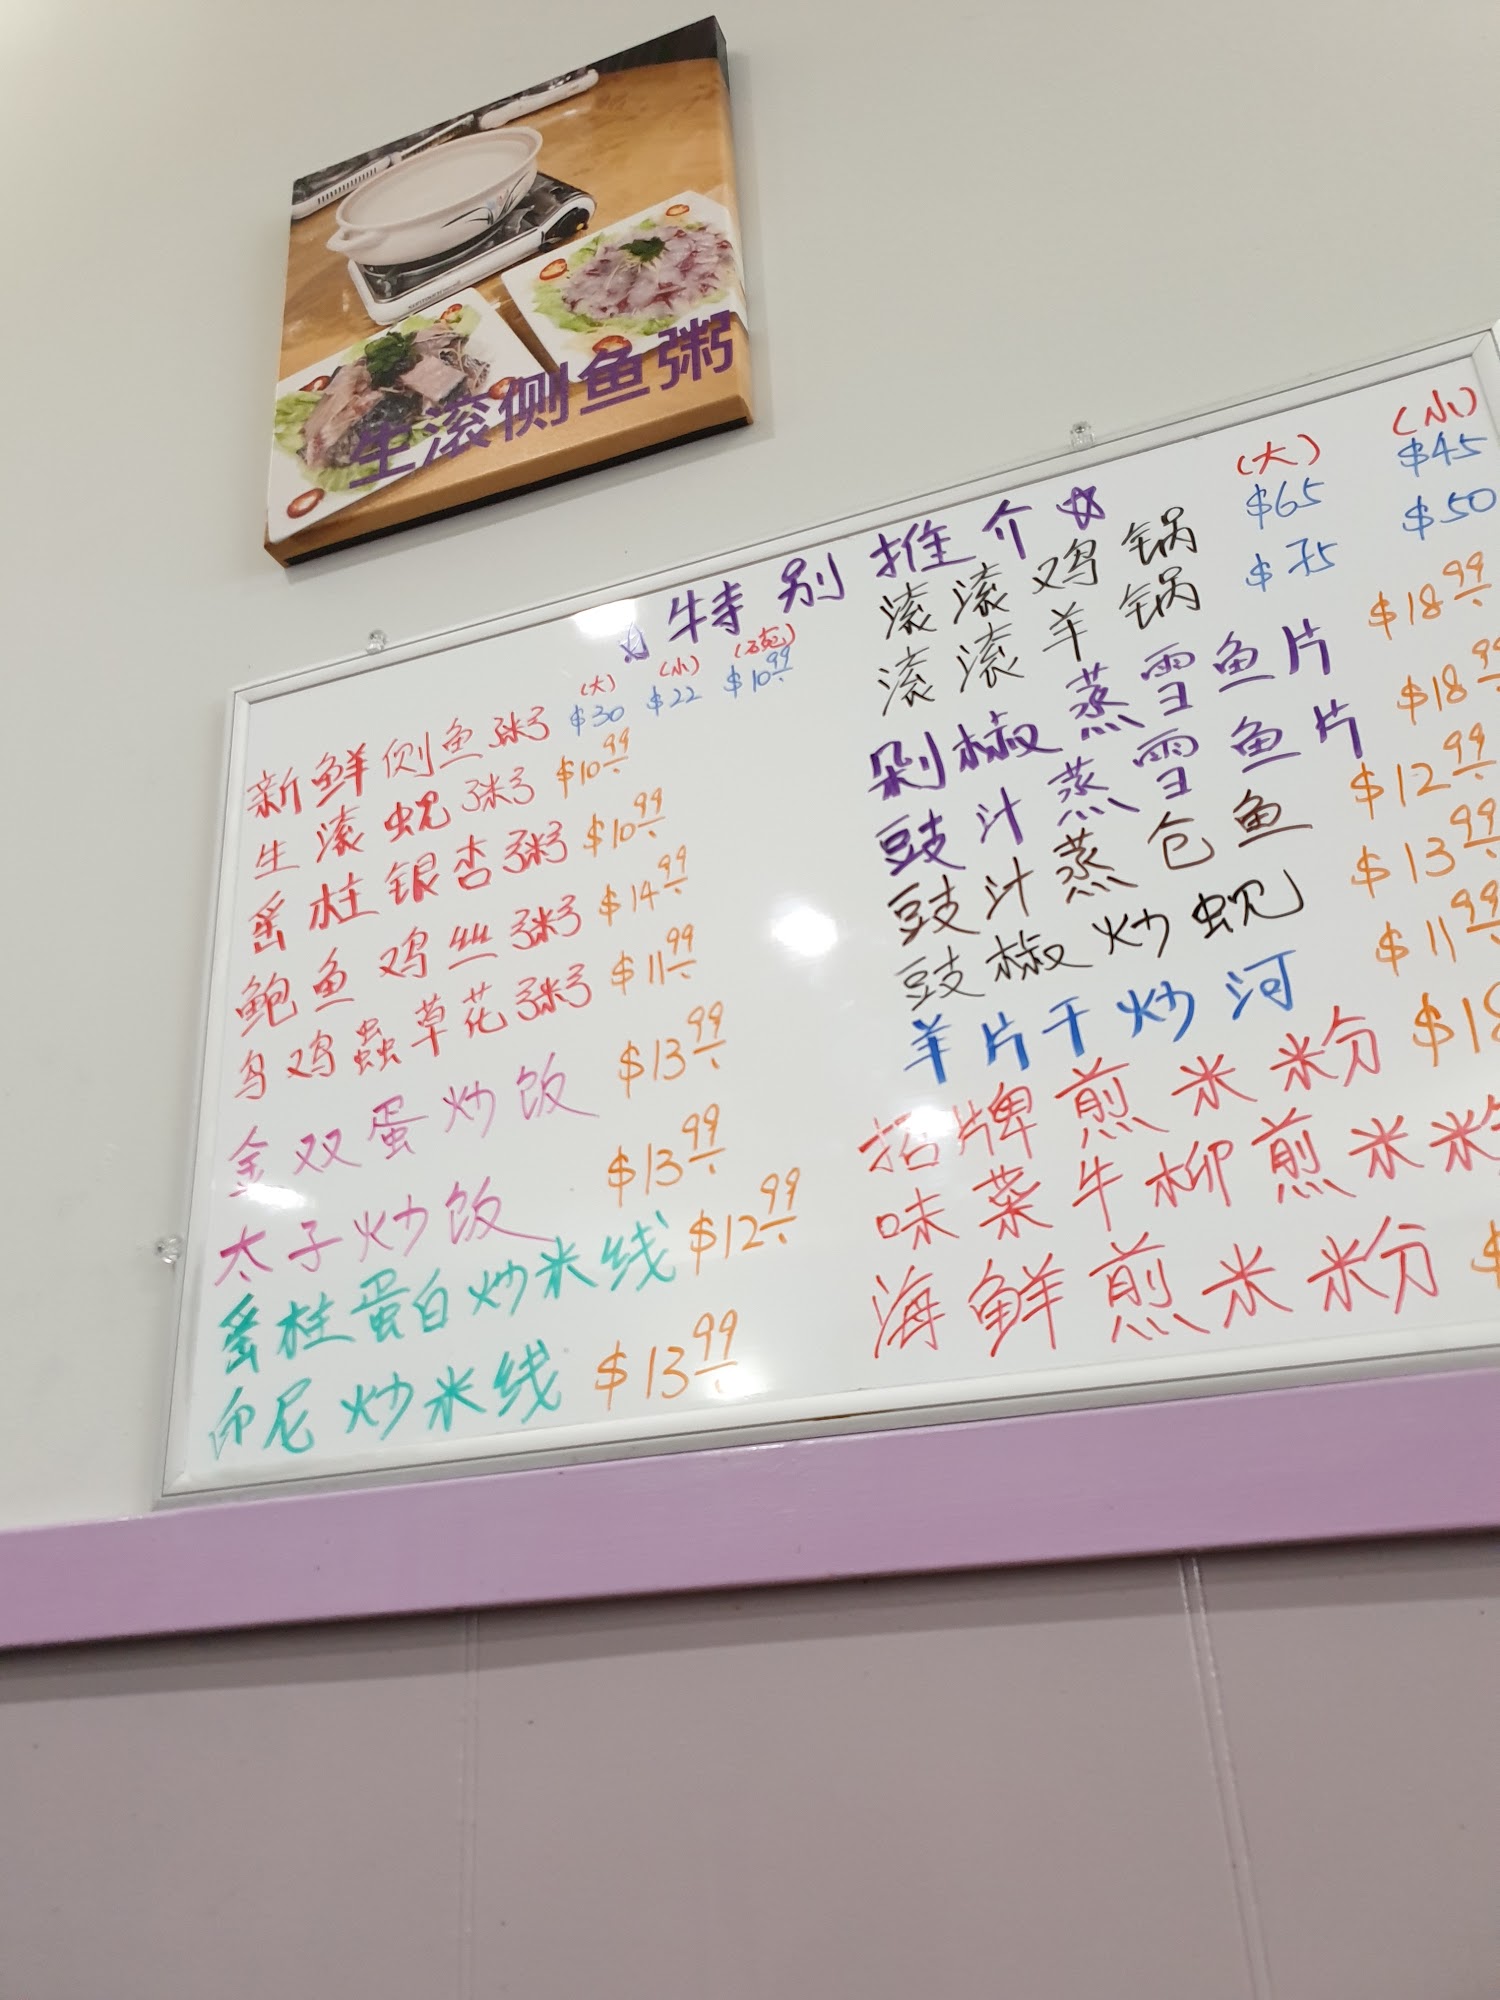 生滚侧鱼粥
☆特别推介☆
(大) (小) (碗)
新鲜侧鱼粥 $30 $22 $10.99
生滚蚬粥 $10.99
瑤柱银杏粥 $10.99
鲍鱼鸡丝粥 $14.99
乌鸡蟲草花粥 $11.99
金双蛋炒饭 $13.99
太子炒饭 $13.99
瑤柱蛋白炒米线 $12.99
印尼炒米线 $13.99
(大) (小)
滚滚鸡锅 $65 $45
滚滚羊锅 $75 $50
剁椒蒸雪鱼片 $18.99
豉汁蒸雪鱼片 $18.99
豉汁蒸仓鱼 $12.99
豉椒炒蚬 $13.99
羊片干炒河 $11.99
招牌煎米粉
味菜牛柳煎米粉
海鲜煎米粉